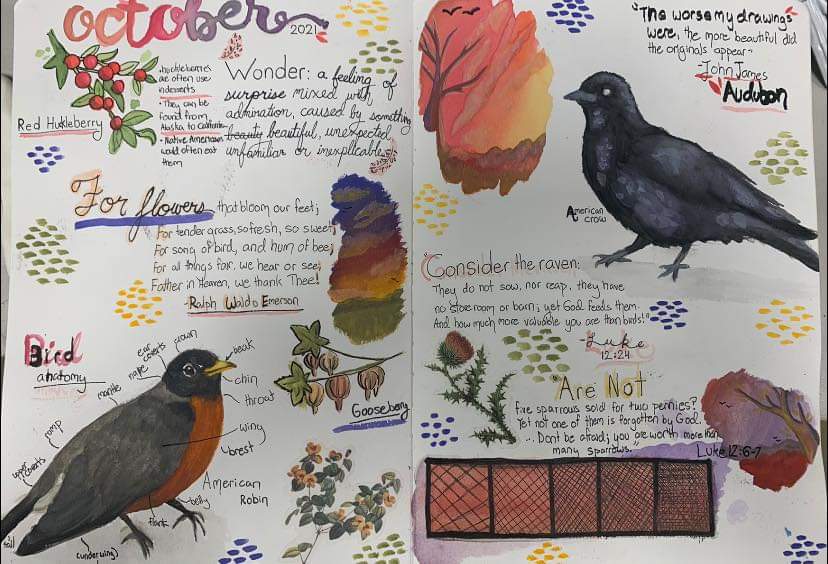 october
2021
Red Hukleberry
•huckleberries
are often use
in desserts
• They can be
found from
Alaska to California
•Native Americans
would often eat
them
Wonder: a feeling of
surprise mixed with
admination, caused by something
beauty beautiful, unexpected,
unfamiliar or inexplicable.
For flowers that bloom our feet;
For tender grass, so fresh, so sweet;
For song of bird, and hum of bee;
For all things fair, we hear or see;
Father in Heaven, we thank Thee!
-Ralph Waldo Emerson
Bird
anatomy
crown
ear
coverts
nape
mantle
romp
upper
coverts
tail
beak
chin
throat
wing
brest
belly
flank
(underwing)
American
Robin
Gooseberry
"The worse my drawings
were, the more beautiful did
the originals appear"
-John James
Audubon
American
crow
"Consider the raven:
They do not sow, nor reap, they have
no store room or barn; yet God feeds them.
And how much more valuable you are than birds!"
-Luke
12:24
"Are Not
five sparrows sold for two pennies?
Yet not one of them is forgotten by God.
...Dont be afraid; you are worth more than
many sparrows."
Luke 12:6-7